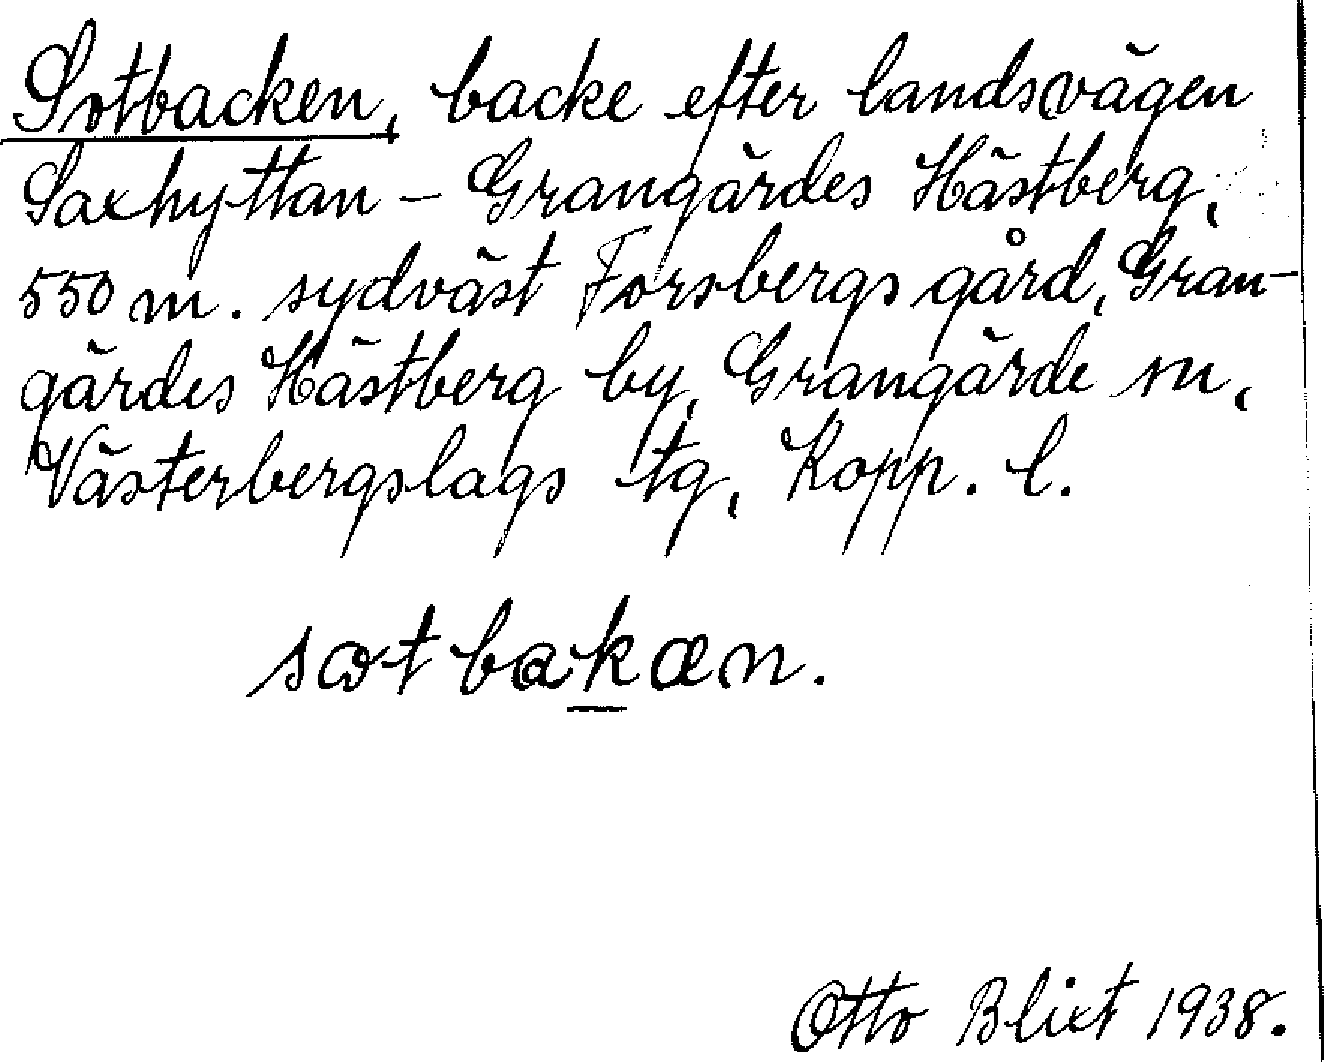 Sotbacken, backe efter landsvägen
Saxhyttan - Grangärdes Hästberg,
550 m. sydväst Forsbergs gård, Gran-
gärdes Hästberg by, Grangärde sn,
Västerbergslags tg, Kopp. l.
sωtbakæn.
Otto Blixt 1938.